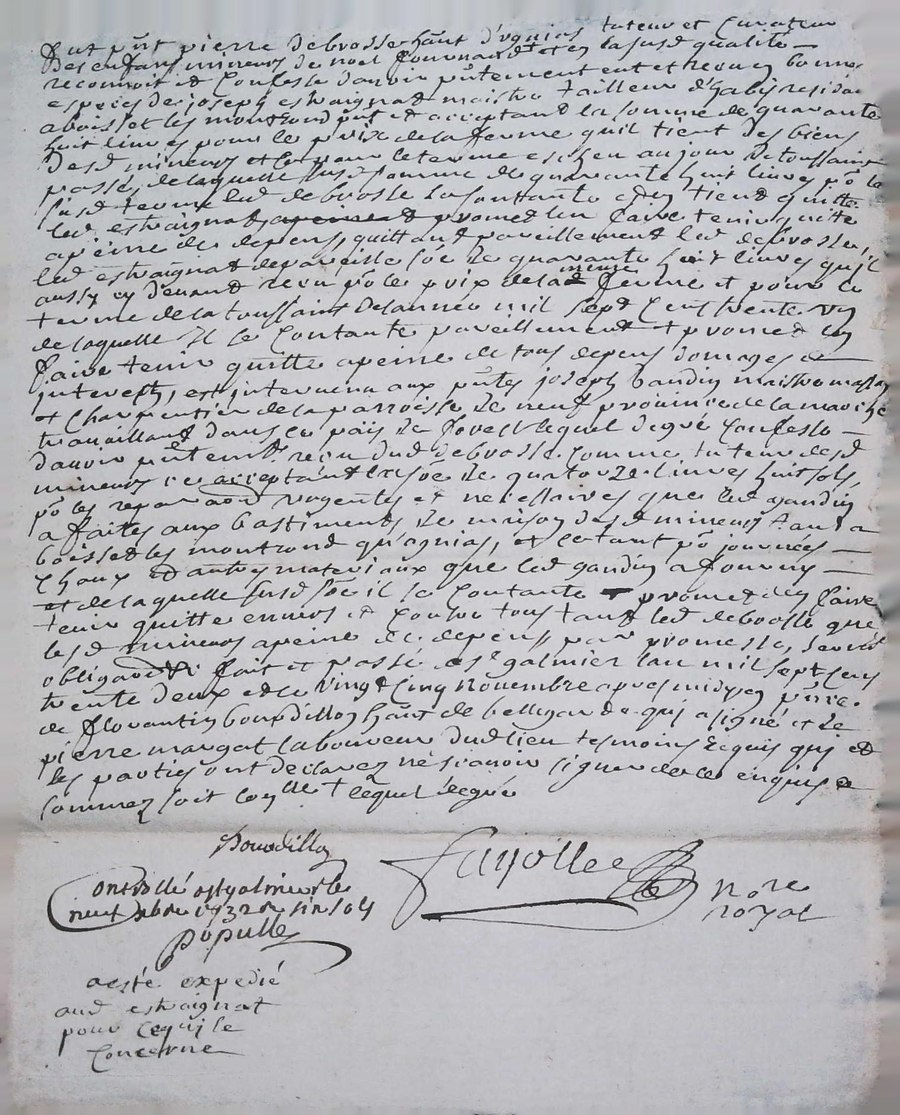 fut pñt pierre debrosse hãnt d'ugnias tuteur et Curateur
des enfans mineurs de noel fournand et en la susd qualité
reconnoit et Confesse d'avoir pñtement eut et receu en bonnes
especes de joseph estraignat maistre tailleur d'habis residan
a boisset les montrond pñt et acceptant la somme de quarante
huit livres pour le prix de la ferme qu'il tient des biens
desd mineurs et ce pour le terme escheu au jour de toussaint
passé, de laquelle susd somme de quarante huit livres põ le
susd terme led debrosse sa Contante et en tient quitte
led estraignat promed len faire tenir quitte
a peine de depens, quittant pareillement led debrosse,
led estraignat de pareille sõe de quarante huit livres qu'il
aussy cy devant receu põ le prix de lad mesme ferme et pour le
terme de la toussaint de lannée mil sept Cens trente un
de laquelle il se Contante pareillement + promed len
faire tenir quitte a peine de tous depens domages et
interests, est intervenu aux pñtes joseph gaudin maistre masson
et Charpentier de la parroisse de neuf province de la marche
travaillant dans ce pais de forest lequel de gré Confesse
davoir pñtement receu dud debrosse comme tuteur desd
mineurs ce acceptant la sõe de quatorze livres huit sols,
põ les reparaõns urgentes et necessaires que led gaudin
a faites aux bastiments de maison desd mineurs tant a
boisset les montrond qu'ugnias, et ce tant põ journées
Chaux et autres materiaux que led gaudin a fourny
et de laquelle susd sõe il se Contante + promed len faire
tenir quitte envers et Contre tous tant led debrosse que
lesd mineurs a peine de depens par promesse, serment
obligaõn fait et passé a st galmier lan mil sept cens
trente deux et le vingt Cinq novembre apres midy en pñce
de florantin bourdillon hãnt de bellegarde qui a signé et de
pierre margat laboureur dud lieu tesmoins requis qui et
les parties ont declarez ne sçavoir signer de ce enquis et
sommez soit Con lle + lequel de gré
Bourdillon
fayolle
nore
royal
Controllé a st galmier le
neuf xbre 1732 six sols
populle
a esté expedié
aud estraignat
pour ce qui le
Concerne